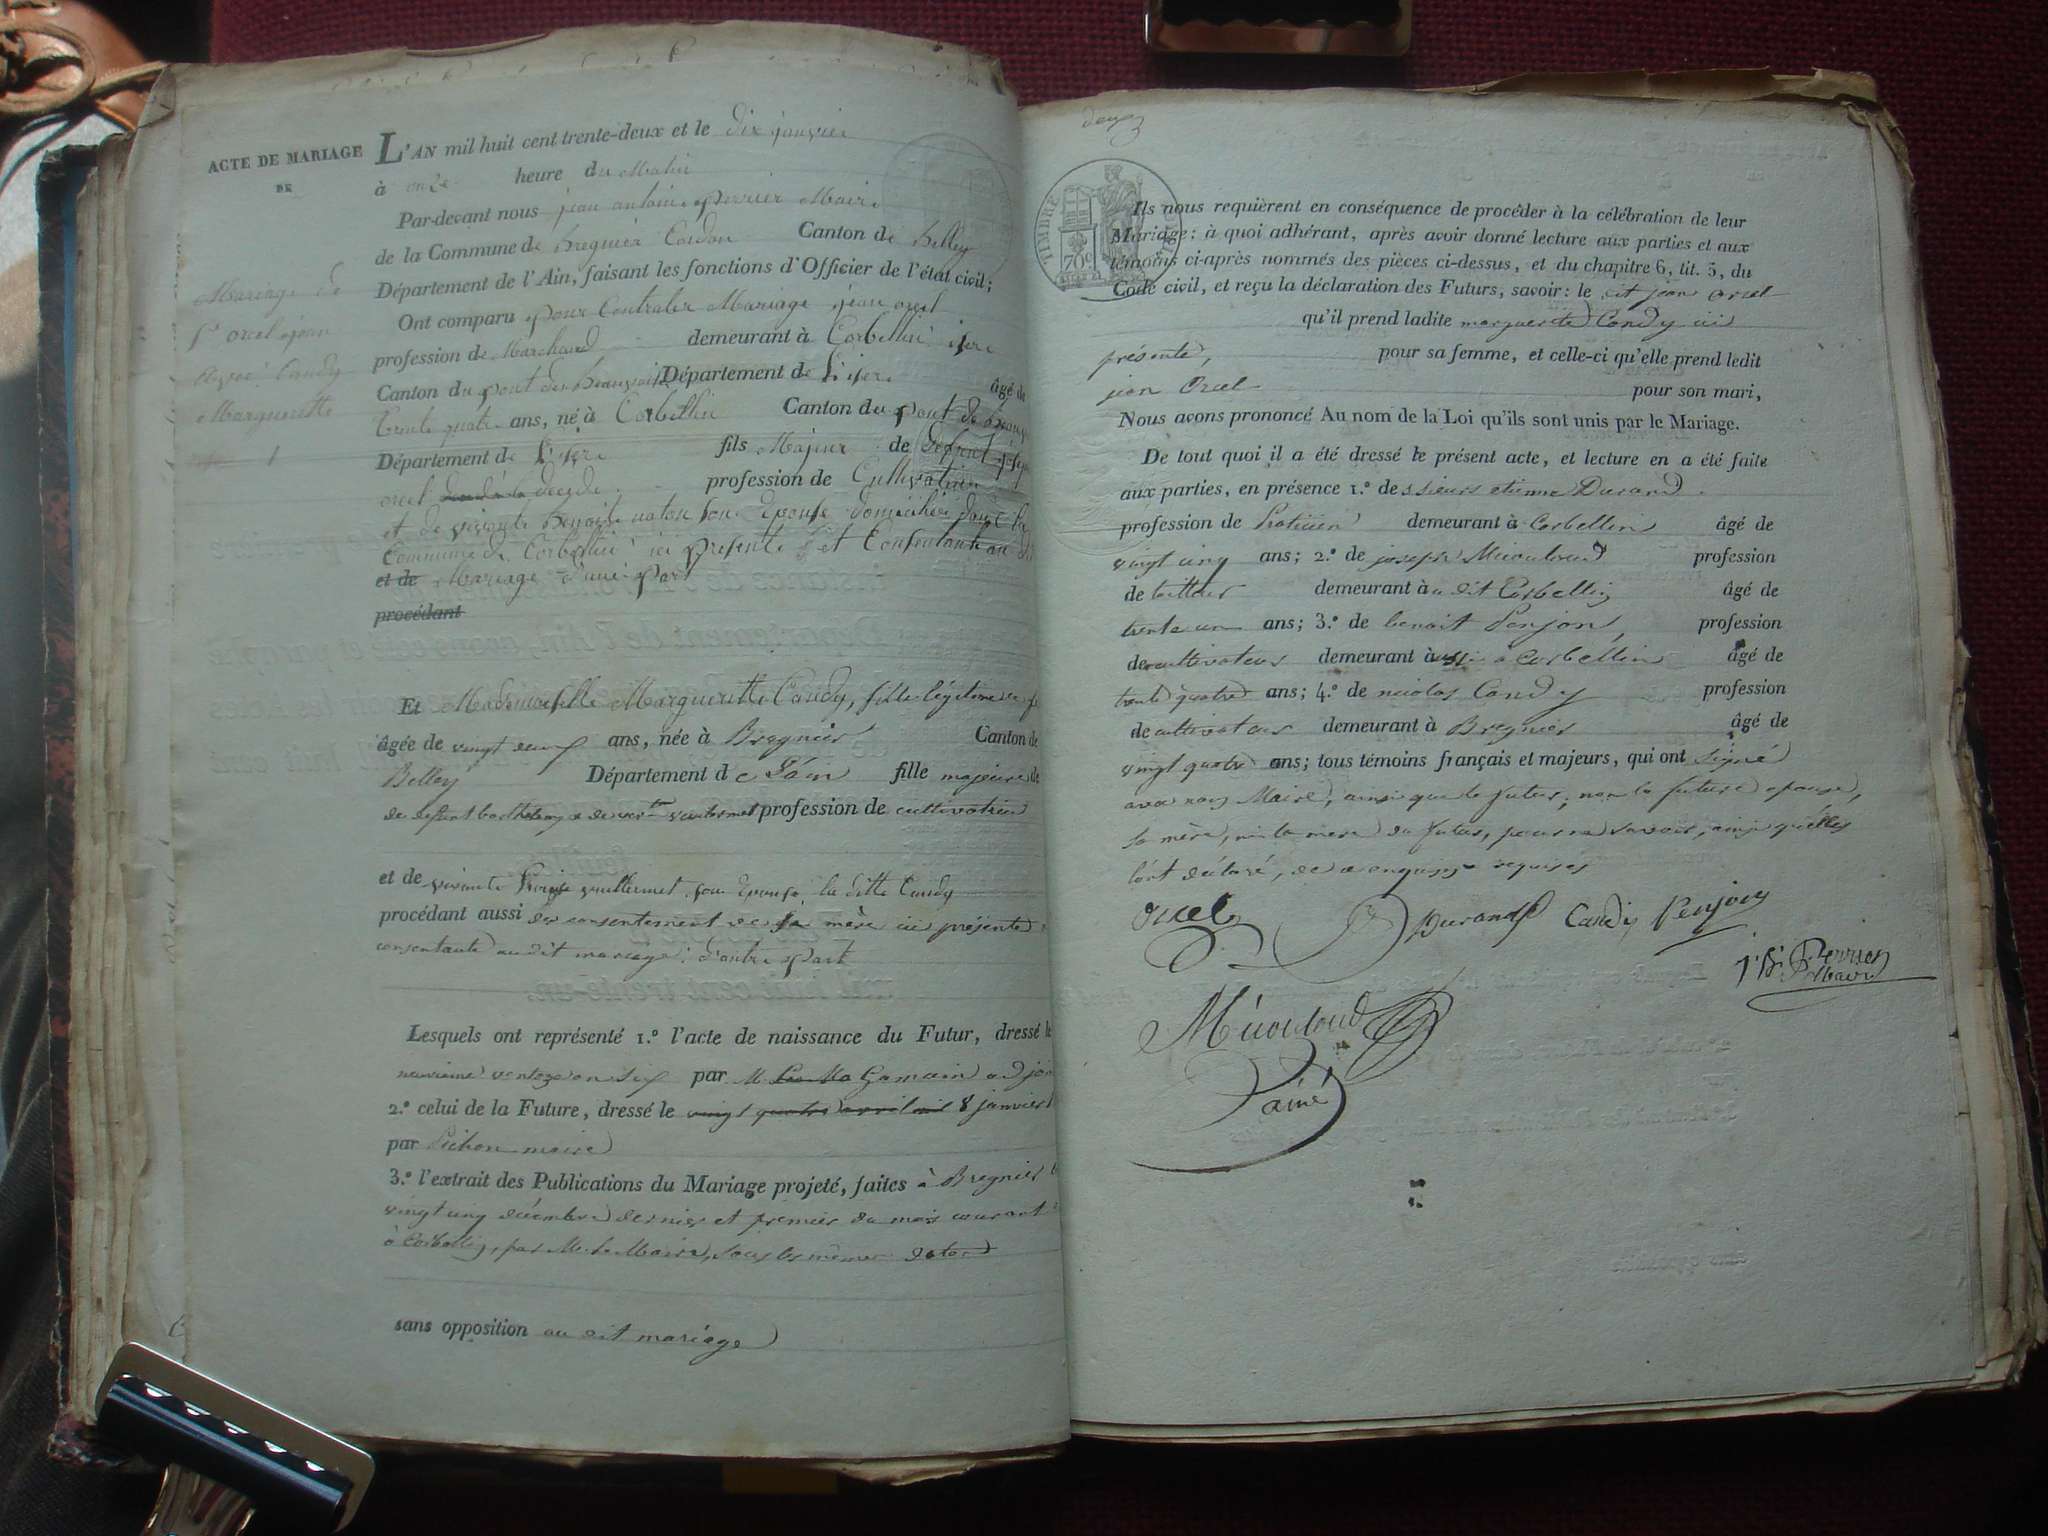 ACTE DE MARIAGE
DE
Mariage de
orcel jean
avec Candy
Margueritte
L'AN mil huit cent trente-deux et le dix janvier
à onze heure du Matin
Par-devant nous jean antoine perrier Maire
de la Commune de Bregnier Cordon Canton de Belley
Département de l'Ain, faisant les fonctions d'Officier de l'état civil;
Ont comparu pour Contracter Mariage jean orcel
profession de Marchand demeurant à Corbellin isere
Canton du pont de Beauvoisin Département de L'isere âgé de
Trente quatre ans, né à Corbellin Canton du pont de beauv
Département de L'isere fils Majeur de defunt
orcel décédé profession de Cultivateur
et de vivante Benoite son Epouse domiciliée dans la
Commune de Corbellin ici presente et Consentante au
et de Mariage d'une part
procédant
Et Mademoiselle Margueritte Candy, fille légitime
âgée de vingt neuf ans, née à Bregnier Canton de
Belley Département de l'ain fille majeure de
de defunt barthelemy profession de cultivatrice
et de vivante vuillermet son Epouse, la ditte Candy
procédant aussi du consentement de sa mère ici présente
consentante au dit mariage d'autre part
Lesquels ont représenté 1.º l'acte de naissance du Futur, dressé le
neuvieme ventoze an six par M Gamain adjoi
2.º celui de la Future, dressé le vingt quatre avril mil 8 janvier
par Pichon maire
3.º l'extrait des Publications du Mariage projeté, faites à Bregnier
vingt cinq décembre dernier et premier du mois courant
à Corbellin, par M. le Maire, sous les mêmes dates
sans opposition au dit mariage
deux
TIMBRE
70c
Ils nous requièrent en conséquence de procéder à la célébration de leur
Mariage: à quoi adhérant, après avoir donné lecture aux parties et aux
témoins ci-après nommés des pièces ci-dessus, et du chapitre 6, tit. 5, du
Code civil, et reçu la déclaration des Futurs, savoir: le dit jean orcel
qu'il prend ladite marguerite Candy ici
présente, pour sa femme, et celle-ci qu'elle prend ledit
jean Orcel pour son mari,
Nous avons prononcé Au nom de la Loi qu'ils sont unis par le Mariage.
De tout quoi il a été dressé le présent acte, et lecture en a été faite
aux parties, en présence 1.º de ssieurs etienne Durand
profession de Praticien demeurant à Corbellin âgé de
vingt cinq ans; 2.º de joseph Micouloud profession
de tailleur demeurant à u dit Corbellin âgé de
trente un ans; 3.º de benoit Penjon profession
de cultivateur demeurant à ussi à Corbellin âgé de
trente quatre ans; 4.º de nicolas Candy profession
de cultivateur demeurant à Bregnier âgé de
vingt quatre ans; tous témoins français et majeurs, qui ont signé
avec nous Maire, ainsi que le futur, non la future epouse,
sa mère, ni la mère du futur, pour ne savoir, ainsi qu'elles
l'ont déclaré, de ce enquises requises
Orcel Durand Candy Penjon
Perrier
Maire
Micouloud
ainé